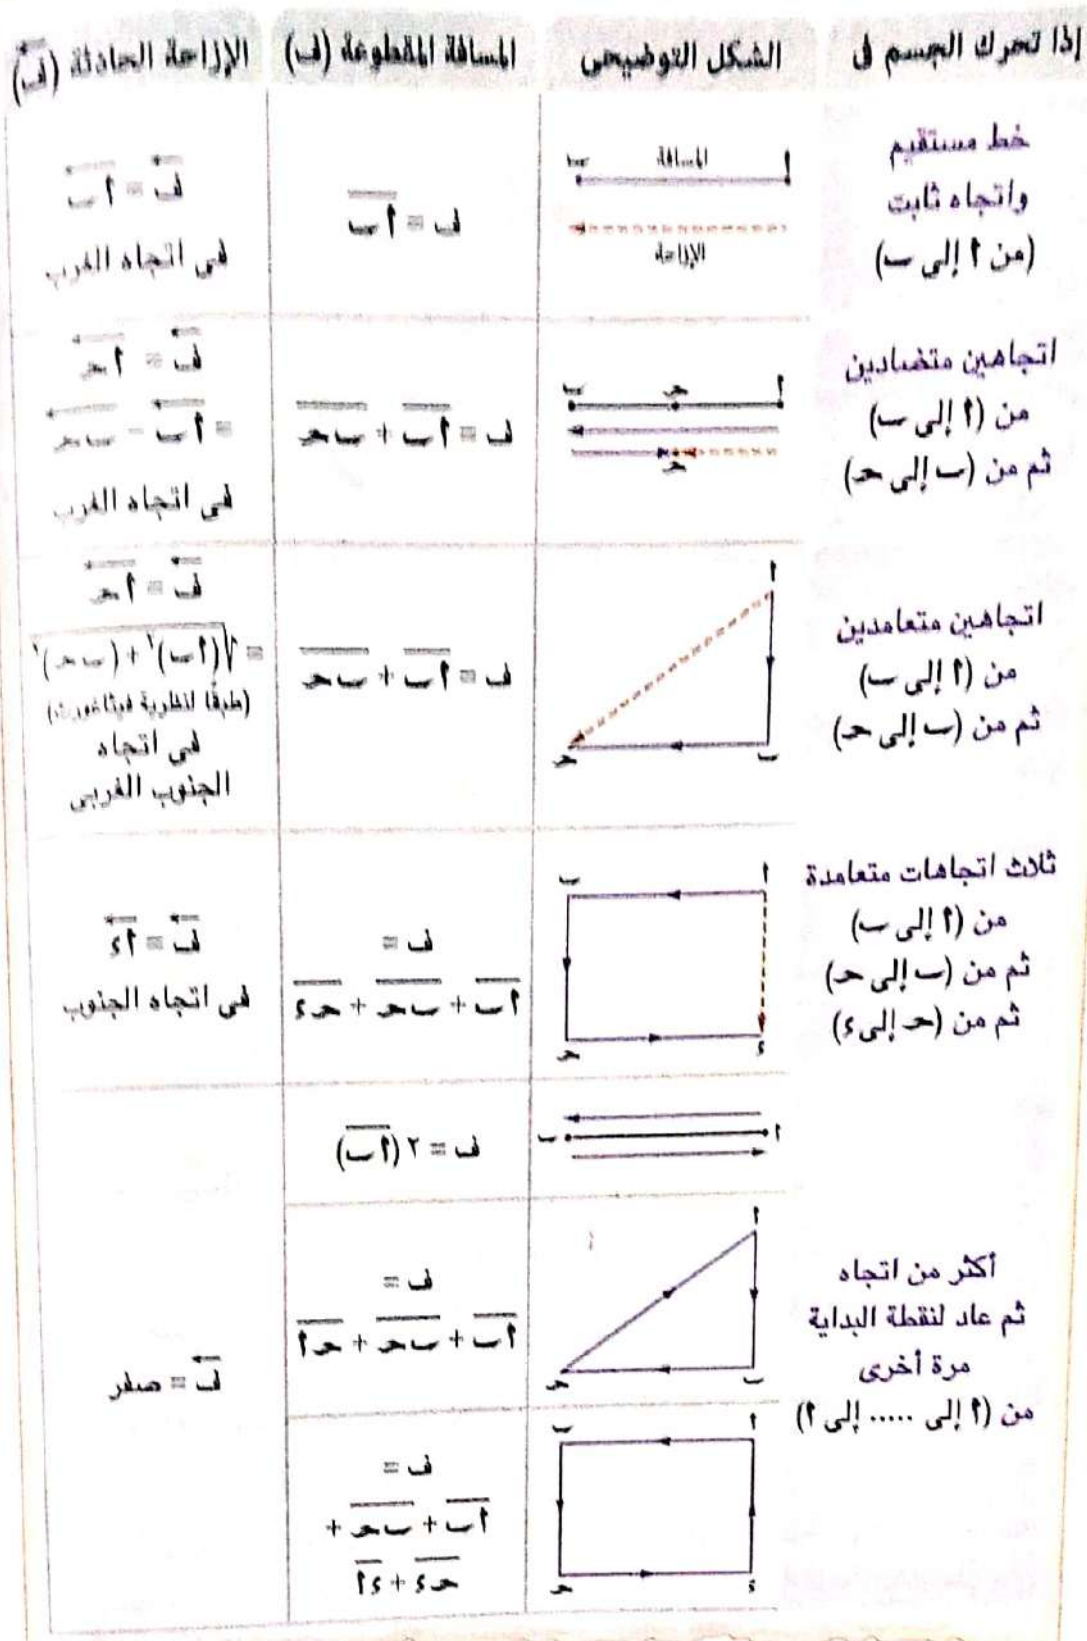 إذا تحرك الجسم فى
الشكل التوضيحى
المسافة المقطوعة (ف)
الإزاحة الحادثة (ف⃖)
خط مستقيم
واتجاه ثابت
(من أ إلى ب)
ب
المسافة
أ
الإزاحة
ف = أب
ف = أب
فى اتجاه الغرب
اتجاهين متضادين
من (أ إلى ب)
ثم من (ب إلى حـ)
ب
حـ
أ
حـ
ف = أب + ب حـ
ف = أحـ
= أب - ب حـ
فى اتجاه الغرب
اتجاهين متعامدين
من (أ إلى ب)
ثم من (ب إلى حـ)
أ
حـ
ب
ف = أب + ب حـ
ف = أحـ
= √(أب)² + (ب حـ)²
(طبقًا لنظرية فيثاغورث)
فى اتجاه
الجنوب الغربى
ثلاث اتجاهات متعامدة
من (أ إلى ب)
ثم من (ب إلى حـ)
ثم من (حـ إلى ء)
ب
أ
حـ
ء
ف =
أب + ب حـ + حـ ء
ف = أء
فى اتجاه الجنوب
أكثر من اتجاه
ثم عاد لنقطة البداية
مرة أخرى
من (أ إلى ..... إلى أ)
ب
أ
ف = ٢ (أب)
أ
حـ
ب
ف =
أب + ب حـ + حـ أ
ب
أ
حـ
ء
ف =
أب + ب حـ +
حـ ء + ء أ
ف = صفر